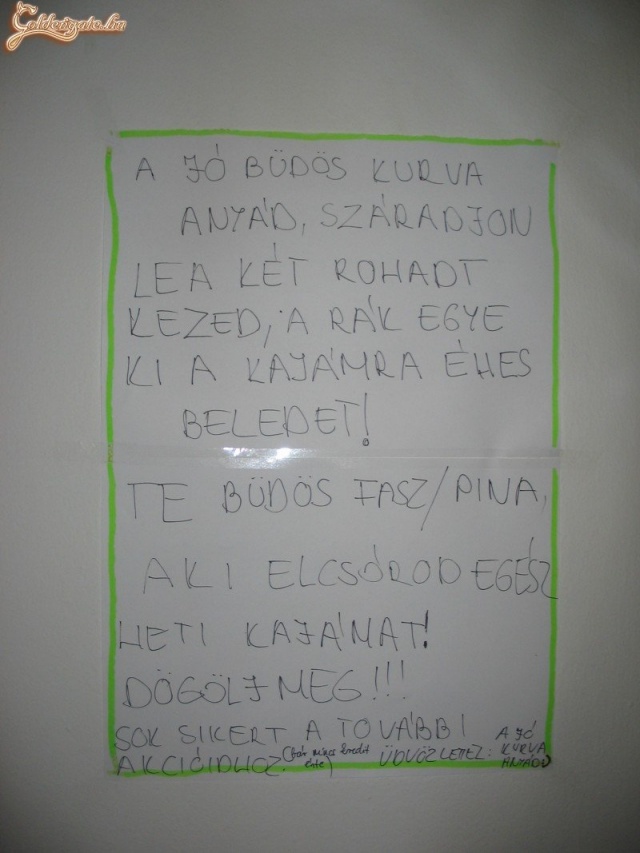 Goldengate.hu
A JÓ BÜDÖS KURVA
ANYÁD, SZÁRADJON
LE A KÉT ROHADT
KEZED, A RÁK EGYE
KI A KAJÁMRA ÉHES
BELEDET!
TE BÜDÖS FASZ/PINA,
AKI ELCSÓROD EGÉSZ
HETI KAJÁMAT!
DÖGÖLJ MEG!!!
SOK SIKERT A TOVÁBBI
AKCIÓIDHOZ! (bár nincs kredit
érte)
ÜDVÖZLETTEL: A JÓ
KURVA
ANYÁD